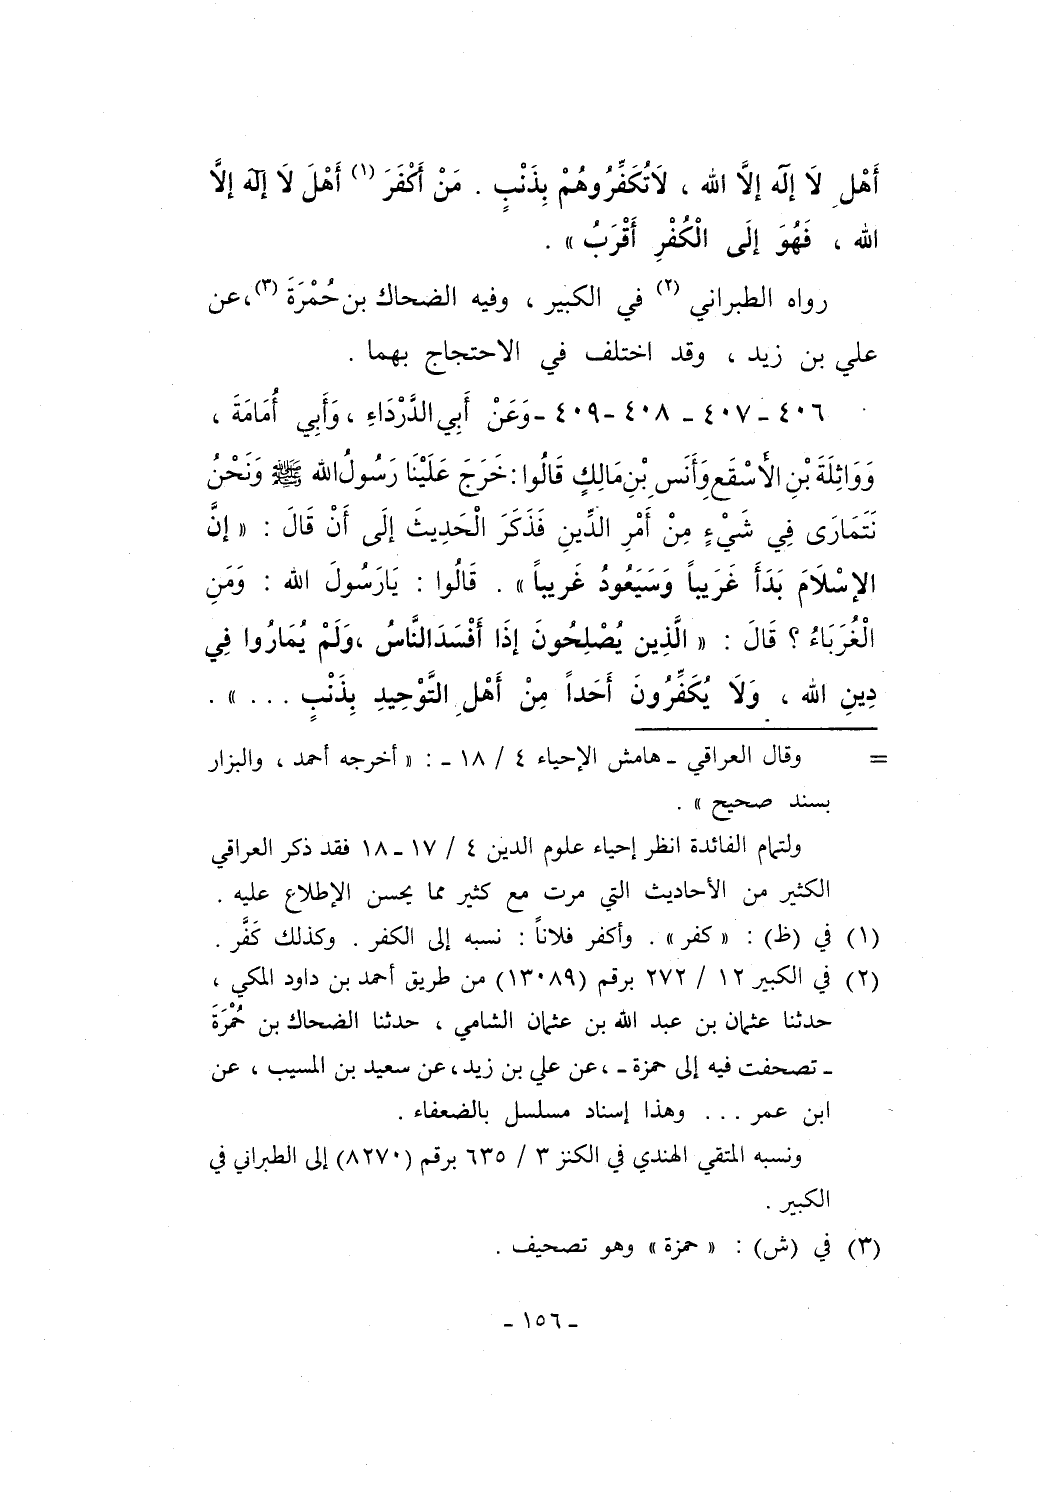 أَهْلِ لَا إلَهَ إلَّا الله ، لَاتُكَفِّرُوهُمْ بِذَنْبٍ . مَنْ أَكْفَرَ (١) أَهْلَ لَا إلَهَ إلَّا
الله ، فَهُوَ إلَى الْكُفْرِ أَقْرَبُ » .
رواه الطبراني (٢) في الكبير ، وفيه الضحاك بن حُمْرَةَ (٣)، عن
علي بن زيد ، وقد اختلف في الاحتجاج بهما .
٤٠٦ - ٤٠٧ - ٤٠٨ - ٤٠٩ - وَعَنْ أَبِي الدَّرْدَاءِ ، وَأَبِي أُمَامَةَ ،
وَوَاثِلَةَ بْنِ الأَسْقَعِ وَأَنَسِ بْنِ مَالِكٍ قَالُوا : خَرَجَ عَلَيْنَا رَسُولُ الله ﷺ وَنَحْنُ
نَتَمَارَى فِي شَيْءٍ مِنْ أَمْرِ الدِّينِ فَذَكَرَ الْحَدِيثَ إلَى أَنْ قَالَ : « إنَّ
الإسْلَامَ بَدَأَ غَرَيباً وَسَيَعُودُ غَريباً » . قَالُوا : يَارَسُولَ الله : وَمَنِ
الْغُرَبَاءُ ؟ قَالَ : « الَّذِين يُصْلِحُونَ إذَا أَفْسَدَ النَّاسُ ، وَلَمْ يُمَارُوا فِي
دِينِ الله ، وَلَا يُكَفِّرُونَ أَحَداً مِنْ أَهْلِ التَّوْحِيدِ بِذَنْبٍ ... » .
= وقال العراقي - هامش الإحياء ٤ / ١٨ - : « أخرجه أحمد ، والبزار
بسند صحيح » .
ولتمام الفائدة انظر إحياء علوم الدين ٤ / ١٧ - ١٨ فقد ذكر العراقي
الكثير من الأحاديث التي مرت مع كثير مما يحسن الإطلاع عليه .
(١) في (ظ) : « كفر » . وأكفر فلاناً : نسبه إلى الكفر . وكذلك كَفَّر .
(٢) في الكبير ١٢ / ٢٧٢ برقم (١٣٠٨٩) من طريق أحمد بن داود المكي ،
حدثنا عثمان بن عبد الله بن عثمان الشامي ، حدثنا الضحاك بن حُمْرَةَ
- تصحفت فيه إلى حمزة - ، عن علي بن زيد ، عن سعيد بن المسيب ، عن
ابن عمر ... وهذا إسناد مسلسل بالضعفاء .
ونسبه المتقي الهندي في الكنز ٣ / ٦٣٥ برقم (٨٢٧٠) إلى الطبراني في
الكبير .
(٣) في (ش) : « حمزة » وهو تصحيف .
- ١٥٦ -